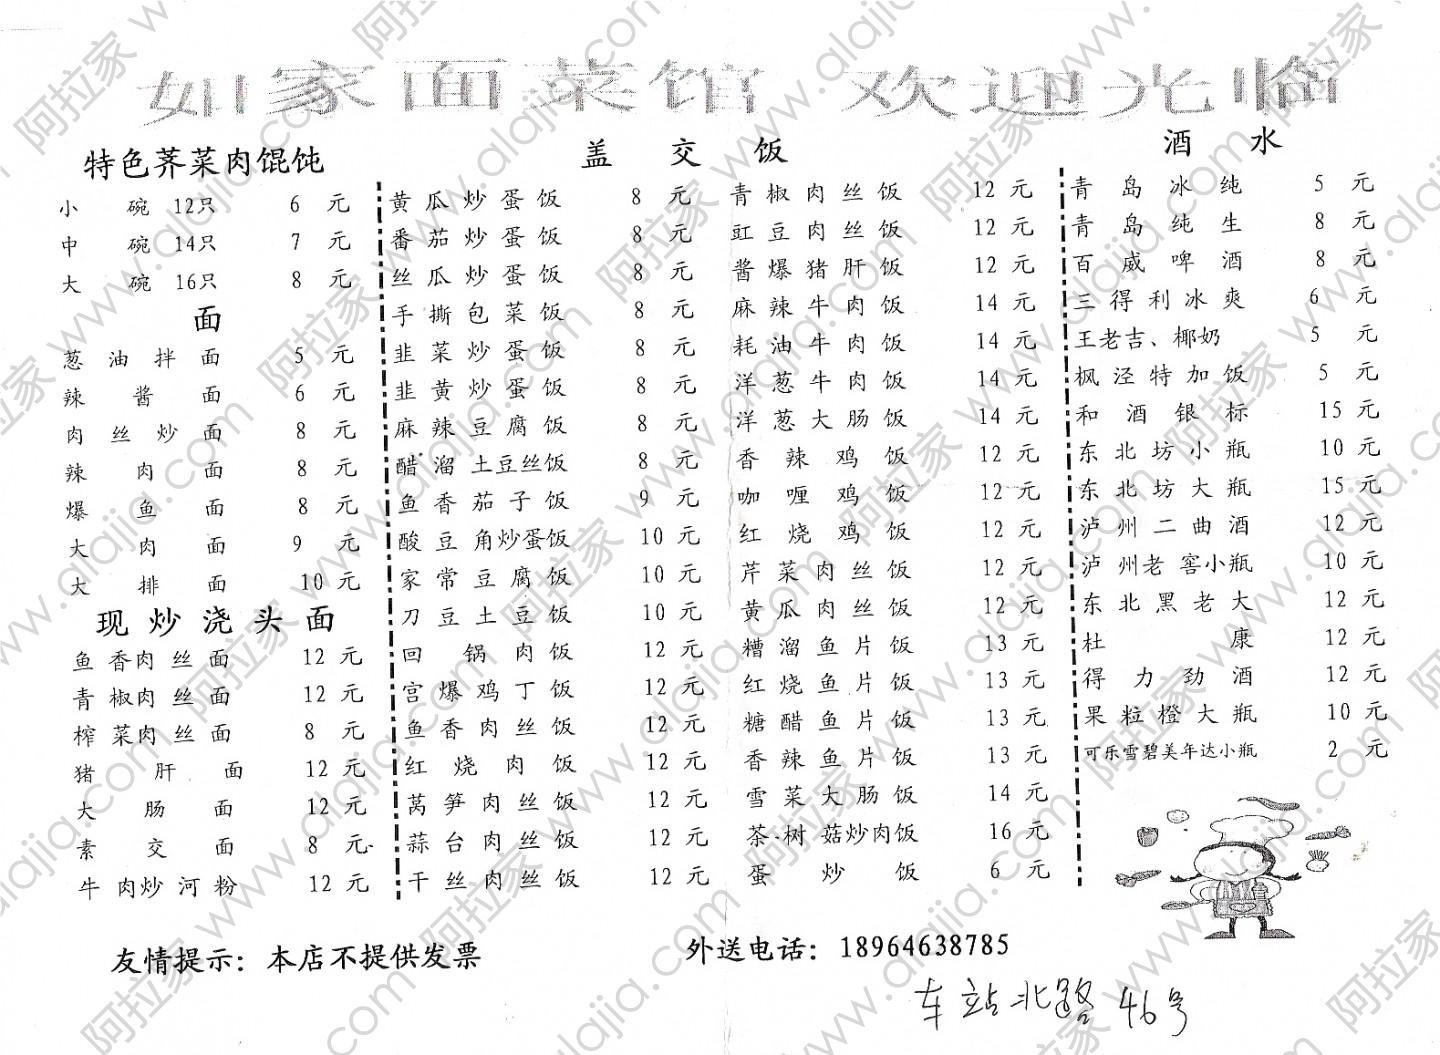 如家面菜馆 欢迎光临
特色荠菜肉馄饨
小碗12只 6元
中碗14只 7元
大碗16只 8元
面
葱油拌面 5元
辣酱面 6元
肉丝炒面 8元
辣肉面 8元
爆鱼面 8元
大肉面 9元
大排面 10元
现炒浇头面
鱼香肉丝面 12元
青椒肉丝面 12元
榨菜肉丝面 8元
猪肝面 12元
大肠面 12元
素交面 8元
牛肉炒河粉 12元
盖交饭
黄瓜炒蛋饭 8元
番茄炒蛋饭 8元
丝瓜炒蛋饭 8元
手撕包菜饭 8元
韭菜炒蛋饭 8元
韭黄炒蛋饭 8元
麻辣豆腐饭 8元
醋溜土豆丝饭 8元
鱼香茄子饭 9元
酸豆角炒蛋饭 10元
家常豆腐饭 10元
刀豆土豆饭 10元
回锅肉饭 12元
宫爆鸡丁饭 12元
鱼香肉丝饭 12元
红烧肉饭 12元
莴笋肉丝饭 12元
蒜台肉丝饭 12元
干丝肉丝饭 12元
青椒肉丝饭 12元
豇豆肉丝饭 12元
酱爆猪肝饭 12元
麻辣牛肉饭 14元
耗油牛肉饭 14元
洋葱牛肉饭 14元
洋葱大肠饭 14元
香辣鸡饭 12元
咖喱鸡饭 12元
红烧鸡饭 12元
芹菜肉丝饭 12元
黄瓜肉丝饭 12元
糟溜鱼片饭 13元
红烧鱼片饭 13元
糖醋鱼片饭 13元
香辣鱼片饭 13元
雪菜大肠饭 14元
茶树菇炒肉饭 16元
蛋炒饭 6元
酒水
青岛冰纯 5元
青岛纯生 8元
百威啤酒 8元
三得利冰爽 6元
王老吉、椰奶 5元
枫泾特加饭 5元
和酒银标 15元
东北坊小瓶 10元
东北坊大瓶 15元
泸州二曲酒 12元
泸州老窖小瓶 10元
东北黑老大 12元
杜康 12元
得力劲酒 12元
果粒橙大瓶 10元
可乐雪碧美年达小瓶 2元
友情提示：本店不提供发票
外送电话：18964638785
车站北路46号
阿拉家 www.alajia.com